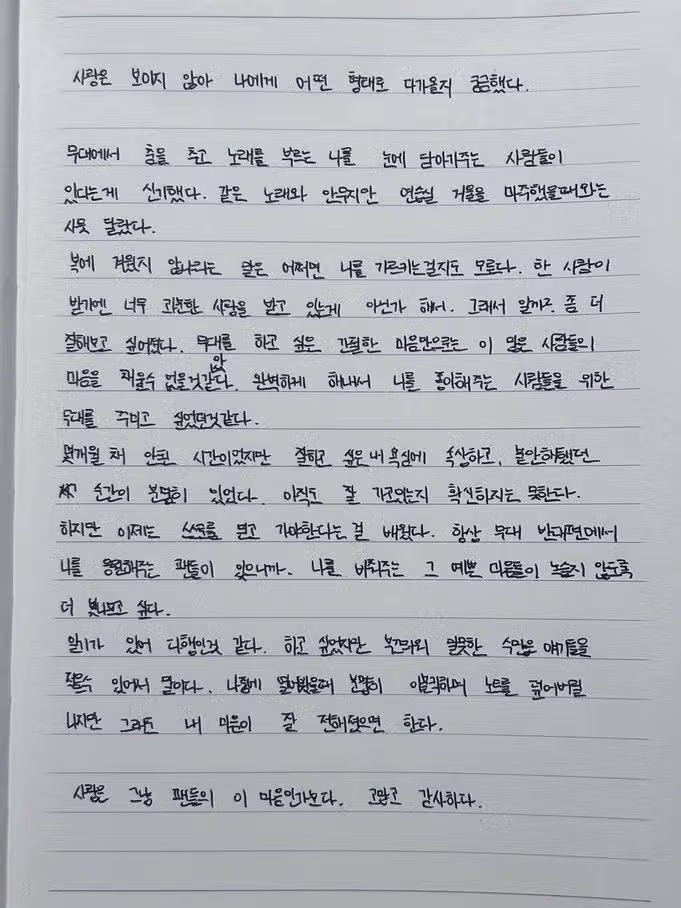 사랑은 보이지 않아 나에게 어떤 형태로 다가올지 궁금했다.
무대에서 춤을 추고 노래를 부르는 나를 눈에 담아가주는 사람들이
있다는게 신기했다. 같은 노래와 안무지만 연습실 거울을 마주했을때와는
사뭇 달랐다.
복에 겨웠지 않냐라는 말은 어쩌면 나를 가르키는걸지도 모르다. 한 사람이
받기엔 너무 과분한 사랑을 받고 있는게 아닌가 해서. 그래서 일까? 좀 더
잘해보고 싶어졌다. 무대를 하고 싶은 간절한 마음만으로는 이 많은 사람들의
마음을 채울수 없을것같았다. 완벽하게 해내서 나를 좋아해주는 사람들을 위한
무대를 꾸미고 싶었던것같다.
몇개월 채 안된 시간이었지만 잘하고 싶은 내 욕심에 속상하고, 불안해했던
순간이 분명히 있었다. 아직도 잘 가고있는지 확신하지는 못한다.
하지만 이제는 스스로를 믿고 가야한다는 걸 배웠다. 항상 무대 반대편에서
나를 응원해주는 팬들이 있으니까. 나를 비춰주는 그 예쁜 마음들이 녹슬지 않도록
더 빛나고 싶다.
일기가 있어 다행인것 같다. 하고 싶었지만 부끄러워 말못한 수많은 얘기들을
적을수 있어서 말이다. 나중에 열어봤을때 분명히 이불킥하며 노트를 덮어버릴
나지만 그래도 내 마음이 잘 전해졌으면 한다.
사랑은 그냥 팬들의 이 마음인가보다. 고맙고 감사하다.